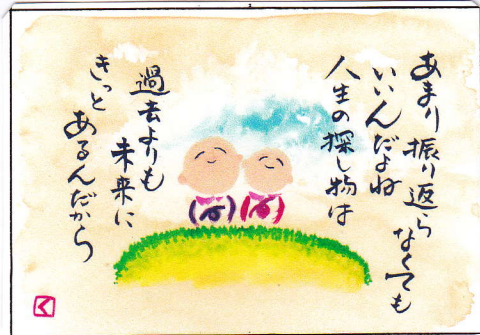 あまり振り返ら
なくても
いいんだよね
人生の探し物は
過去よりも
未来に
きっと
あるんだから
く